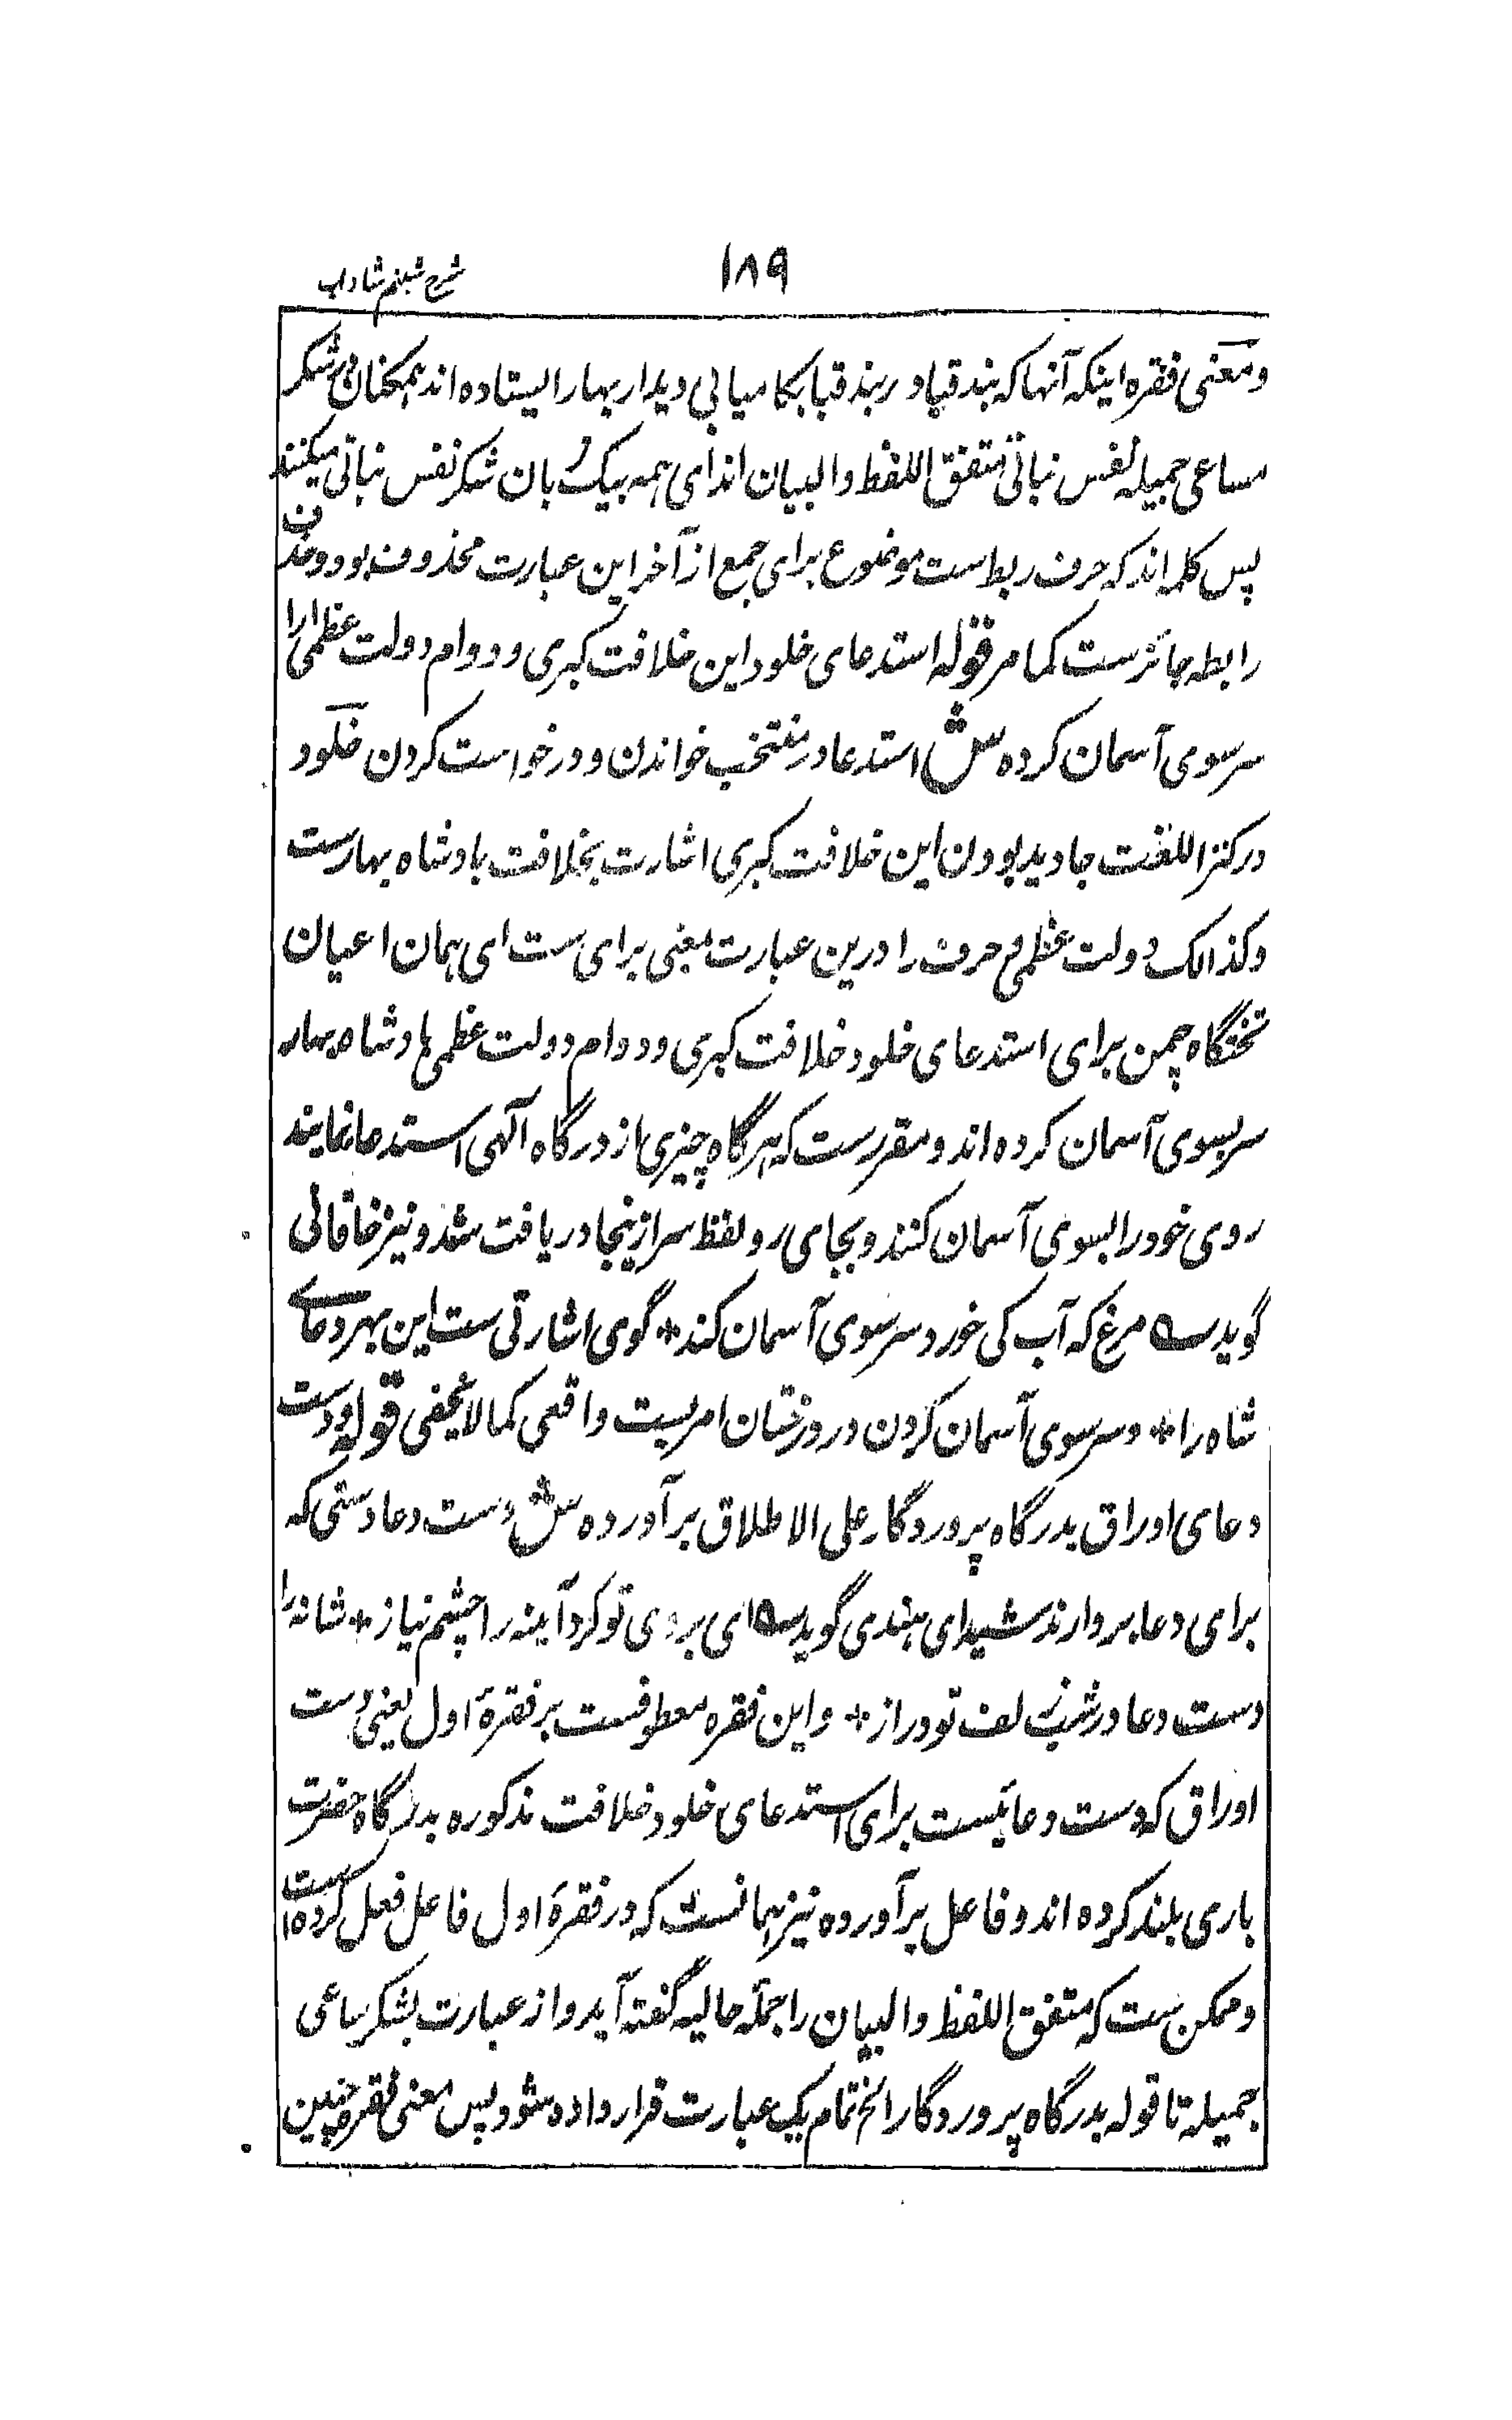 ۱۸۹
شرح شبنم شاداب
و معنی فقره اینکه آنها که بند قبا در بند قبا بکامیابی دیدار بهار ایستاده اند همگنان بشکر
مساعی جمیله نفس نباتی متفق اللفظ والبیان اند ای همه بیک زبان شکر نفس نباتی میکنند
پس کلمه اند که حرف ربط است موضوع برای جمع از آخر این عبارت محذوف بود و حذف
رابطه جائزست کما مر قوله استدعای خلود این خلافت کبری و دوام دولت عظمی را
سر سوی آسمان کرده ش استدعا در منتخب خواندن و درخواست کردن خلود
در کنز اللغت جاوید بودن این خلافت کبری اشارت بخلافت بادشاه بهارست
و کذالک دولت عظمی و حرف را درین عبارت بمعنی برای ست ای همان اعیان
تختگاه چمن برای استدعای خلود خلافت کبری و دوام دولت عظمی بادشاه بهار
سر بسوی آسمان کرده اند و مقررست که هرگاه چیزی از درگاه آلهی استدعا نمایند
روی خود را بسوی آسمان کنند و بجای رو لفظ سر ازینجا دریافت شد و نیز خاقانی
گوید ؎ مرغ که آب کی خورد سر سوی آسمان کند * گوی اشارتی ست این بهر دعای
شاه را * و سر سوی آسمان کردن در درختان امریست واقعی کما لا یخفی قوله و دست
دعای اوراق بدرگاه پروردگار علی الاطلاق برآورده ش دست دعا دستی که
برای دعا بردارند شیدای هندی گوید ؎ ای بروی تو کرد آینه را چشم نیاز * شانه را
دست دعا در شب زلف تو دراز * و این فقره معطوفست بر فقرهٔ اول یعنی دست
اوراق که دست دعائیست برای استدعای خلود خلافت مذکوره بدرگاه حضرت
باری بلند کرده اند و فاعل برآورده نیز همانست که در فقرهٔ اول فاعل فعل کرده است
و ممکن ست که متفق اللفظ والبیان را جملهٔ حالیه گفته آید و از عبارت بشکر مساعی
جمیله تا قوله بدرگاه پروردگار الخ تمام یک عبارت قرار داده شود پس معنی فقره چنین